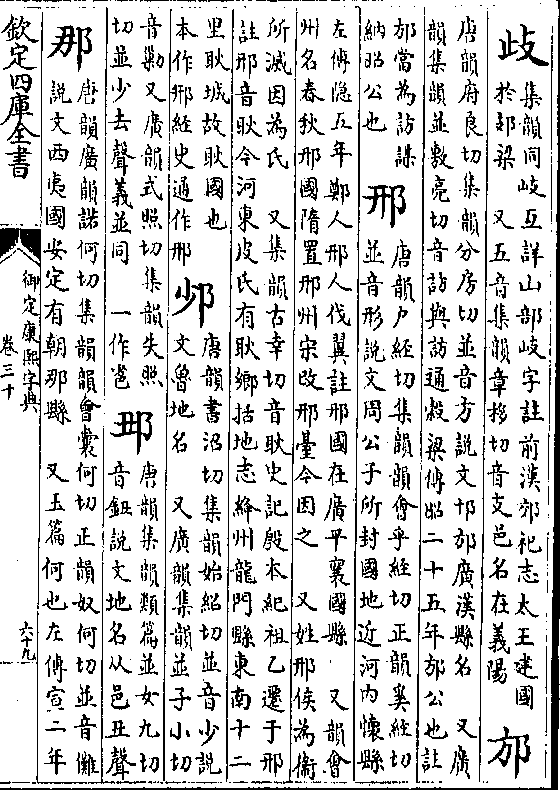 歧
集韻同岐互詳山部岐字註前漢郊祀志太王建國
於郊梁 又五音集韻章移切音支邑名在義陽
邡
唐韻府良切集韻分房切並音方說文邡廣漢縣名 又廣
韻集韻並敷亮切音訪與訪通穀梁傳昭二十五年邡公也註
邡當為訪謀
納昭公也
邢
唐韻戶經切集韻韻會乎經切正韻奚經切
並音形說文周公子所封國地近河內懷縣
左傳隱五年鄭人邢人伐翼註邢國在廣平襄國縣 又韻會
州名春秋邢國隋置邢州宋改邢臺今因之 又姓邢侯為衞
所滅因為氏 又集韻古幸切音耿史記殷本紀祖乙遷于邢
註邢音耿今河東皮氏有耿鄉括地志絳州龍門縣東南十二
里耿城故耿國也
本作郉經史通作邢
唐韻書沼切集韻始紹切並音少說
文魯地名 又廣韻集韻並子小切
音勦又廣韻式照切集韻失照
切並少去聲義並同 一作
唐韻集韻類篇並女九切
音鈕說文地名从邑丑聲
那
唐韻廣韻諾何切集韻韻會囊何切正韻奴何切並音儺
說文西夷國安定有朝那縣 又玉篇何也左傳宣二年
欽定四庫全書
御定康熙字典
卷三十
六十九